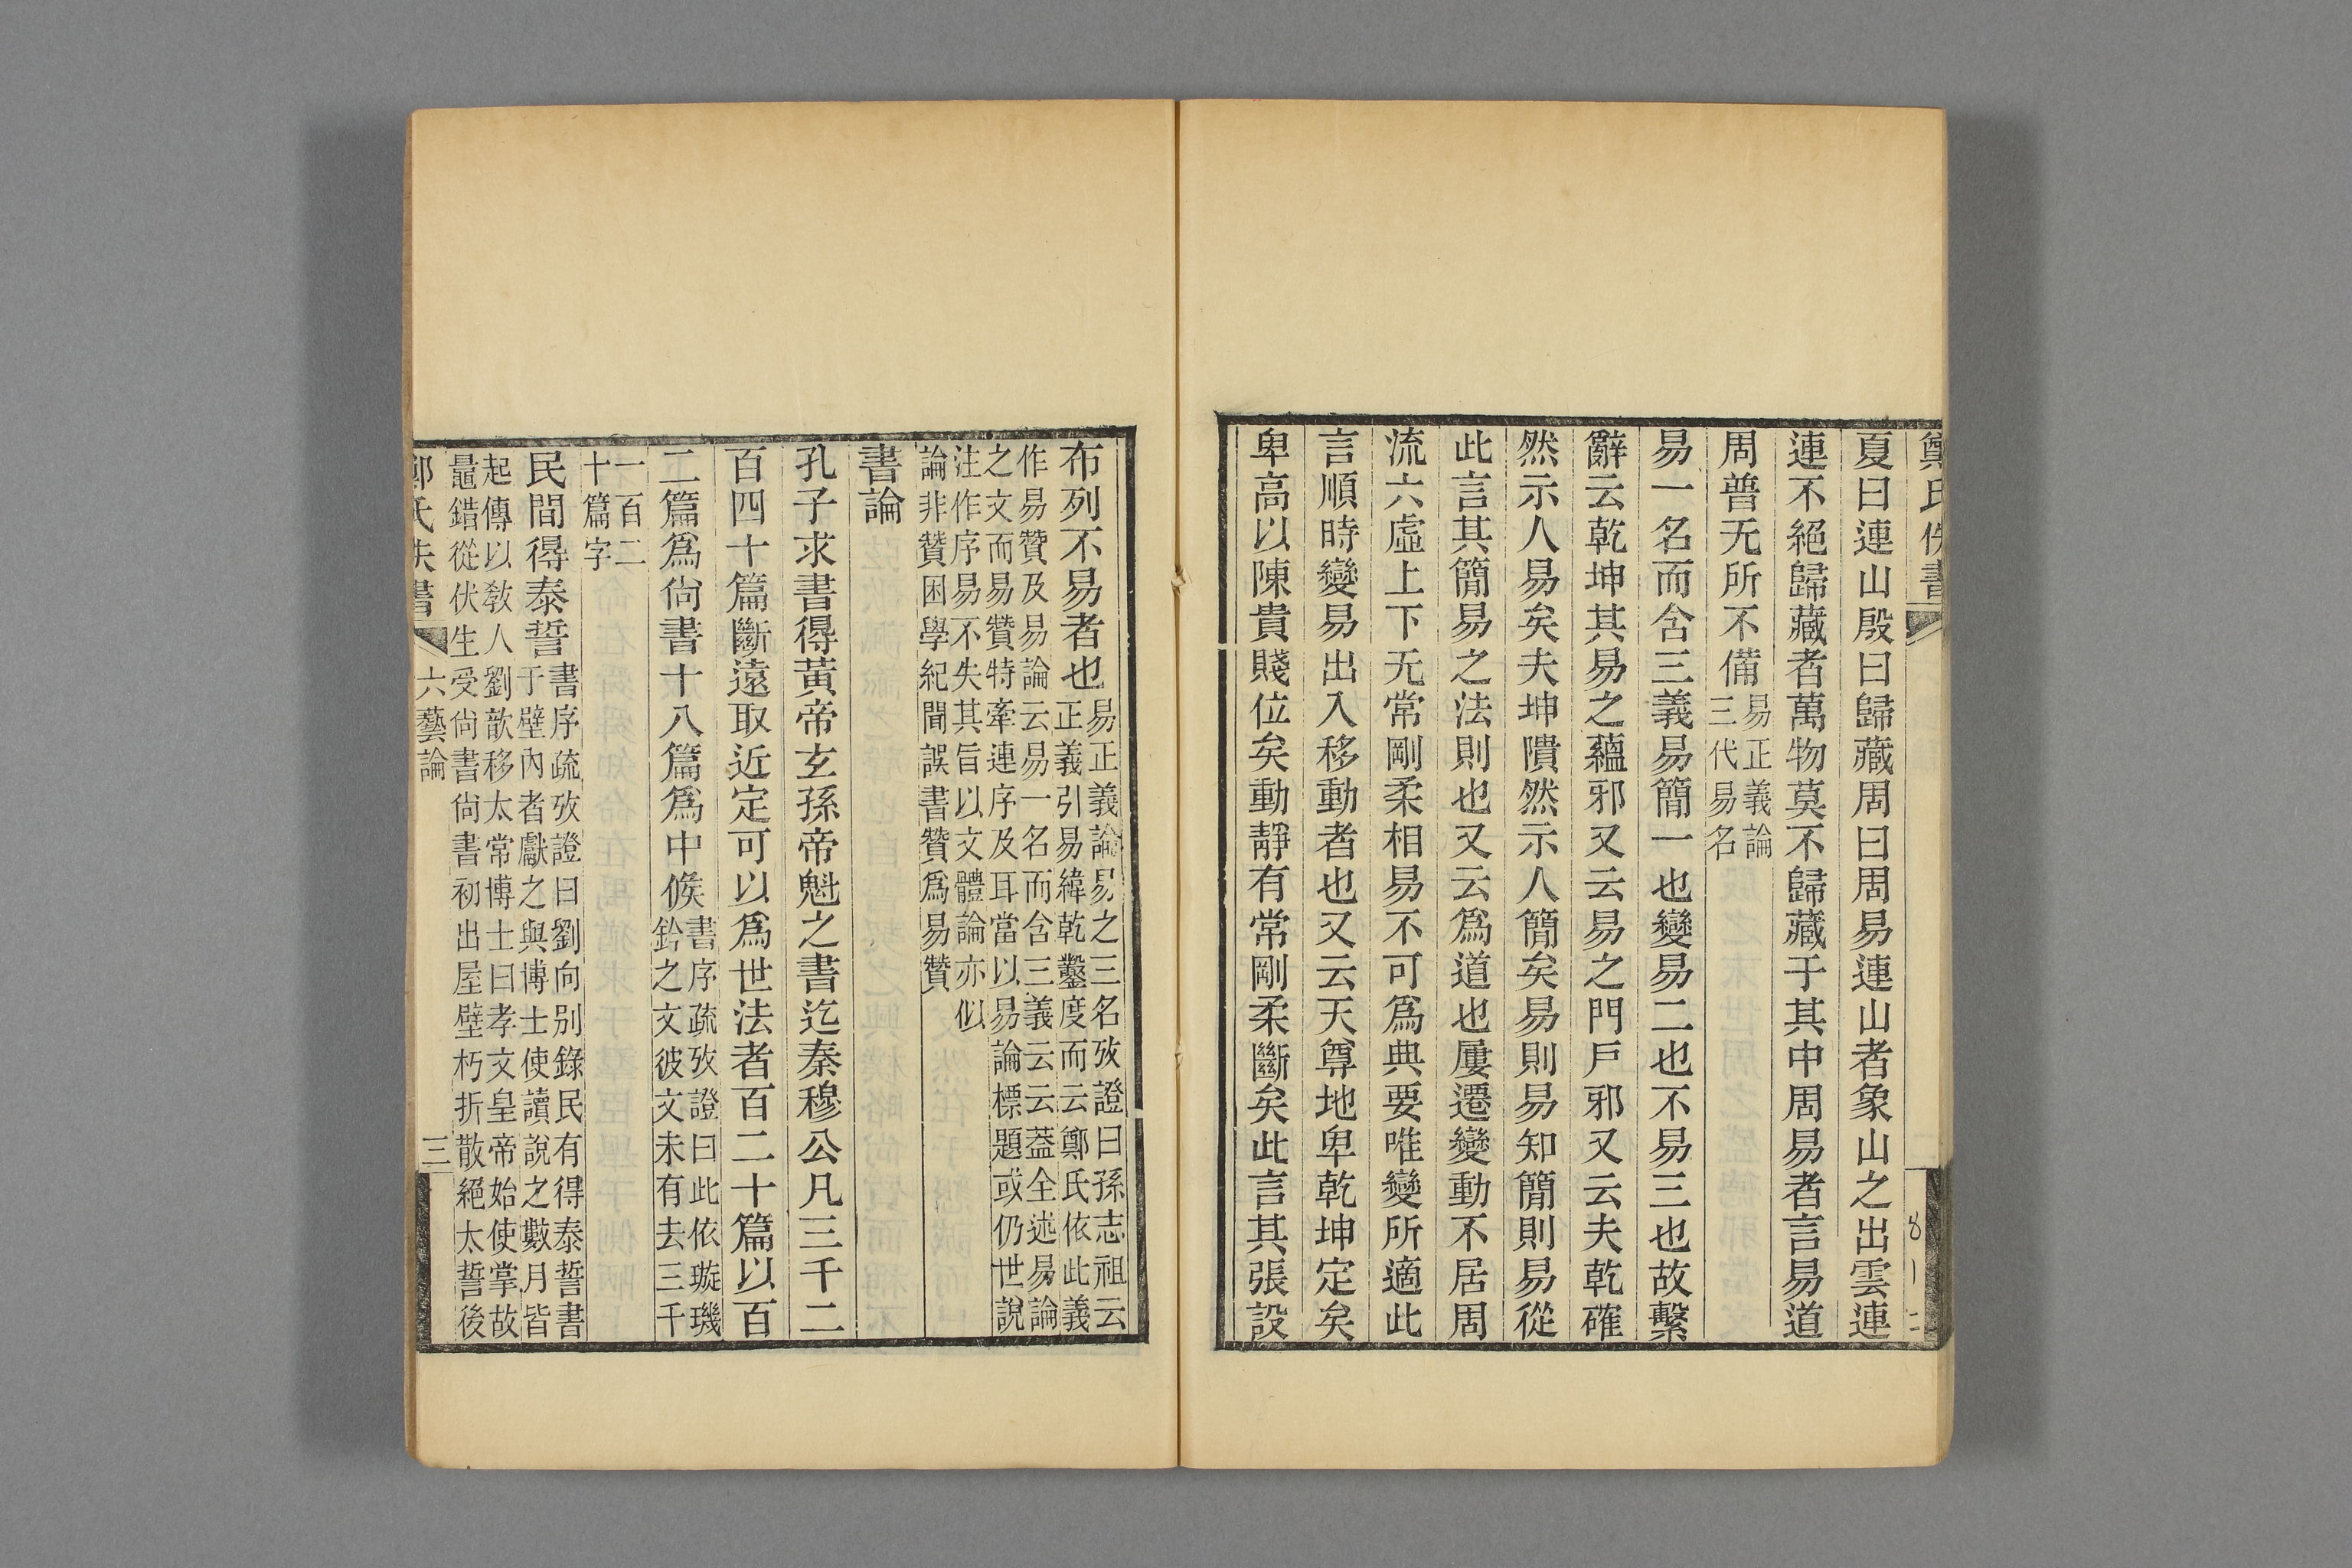 鄭氏佚書
夏曰連山殷曰歸藏周曰周易連山者象山之出雲連
連不絕歸藏者萬物莫不歸藏于其中周易者言易道
周普无所不備易正義論三代易名
易一名而含三義易簡一也變易二也不易三也故繫
辭云乾坤其易之蘊邪又云易之門戶邪又云夫乾確
然示人易矣夫坤隤然示人簡矣易則易知簡則易從
此言其簡易之法則也又云爲道也屢遷變動不居周
流六虛上下无常剛柔相易不可爲典要唯變所適此
言順時變易出入移動者也又云天尊地卑乾坤定矣
卑高以陳貴賤位矣動靜有常剛柔斷矣此言其張設
布列不易者也易正義論易之三名攷證曰孫志祖云
正義引易緯乾鑿度而云鄭氏依此義
作易贊及易論云易一名而含三義云云葢全述易論
之文而易贊特牽連序及耳當以易論標題或仍世說
注作序易不失其旨以文體論亦似
論非贊困學紀聞誤書贊爲易贊
書論
孔子求書得黃帝玄孫帝魁之書迄秦穆公凡三千二
百四十篇斷遠取近定可以爲世法者百二十篇以百
二篇爲尙書十八篇爲中候書序疏攷證曰此依璇璣
鈐之文彼文未有去三千
一百二
十篇字
民間得泰誓書序疏攷證曰劉向別錄民有得泰誓書
于壁內者獻之與博士使讀說之數月皆
起傳以敎人劉歆移太常博士曰孝文皇帝始使掌故
鼂錯從伏生受尙書尙書初出屋壁朽折散絕太誓後
鄭氏佚書 六藝論 三